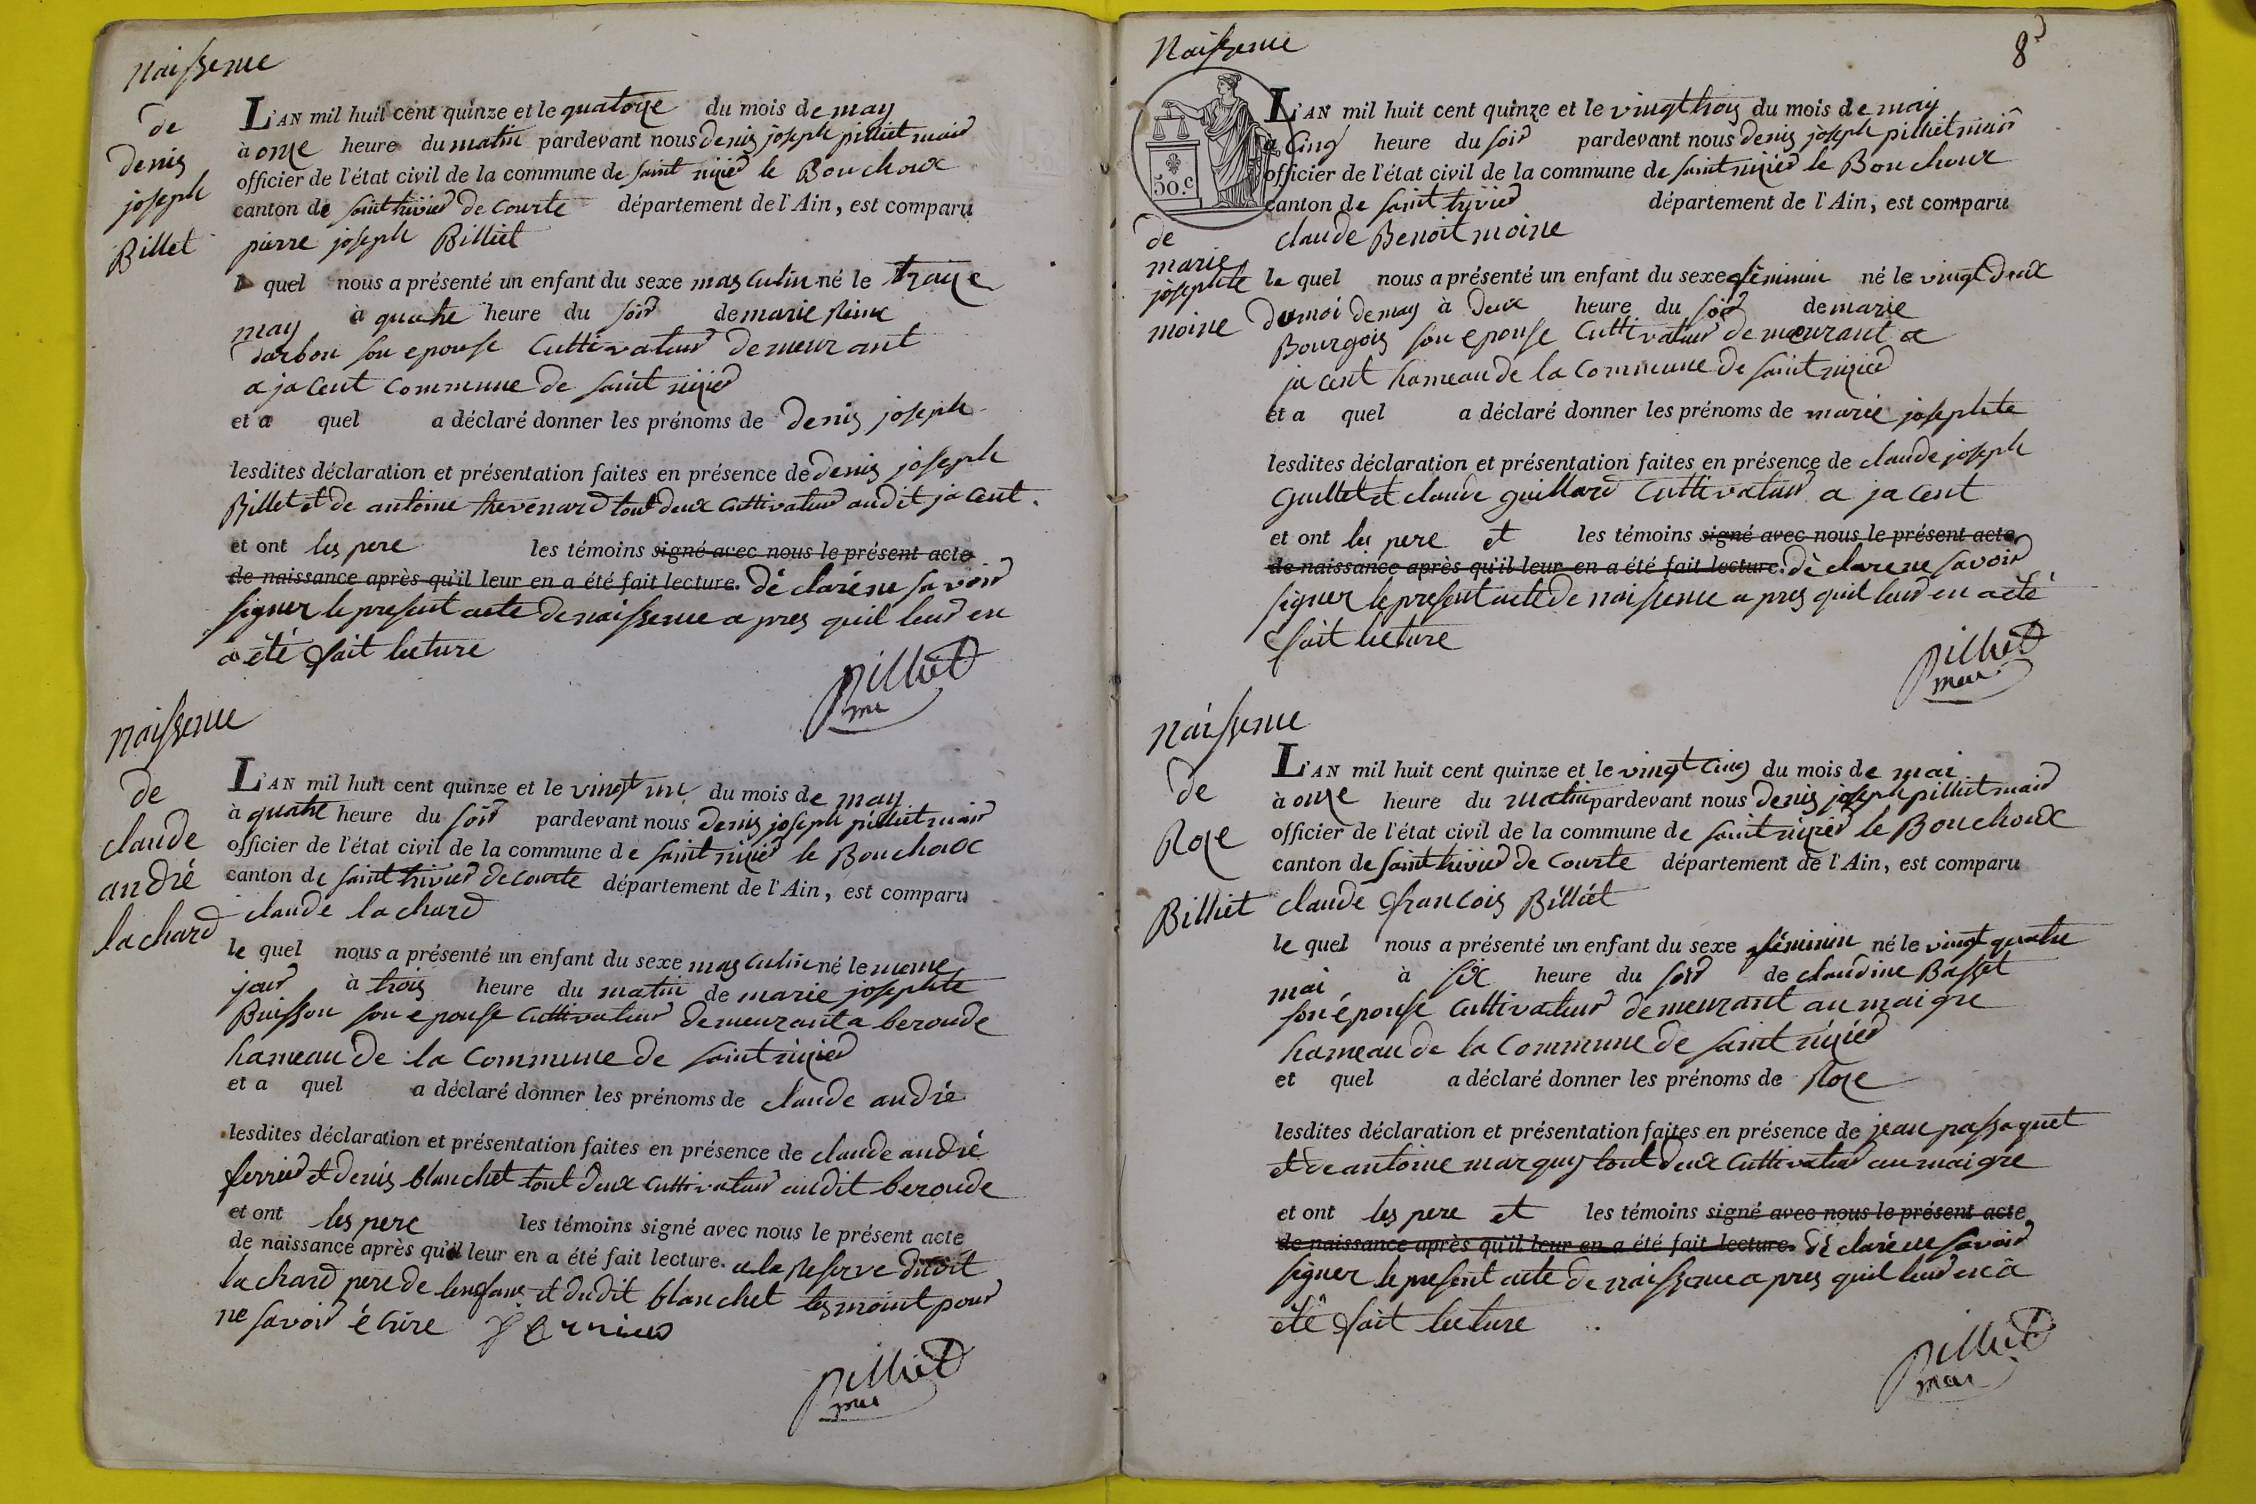 Naissence
de
denis
joseph
Billet
L'AN mil huit cent quinze et le quatorze du mois de may
à onze heure du matin pardevant nous denis joseph pilliet maire
officier de l'état civil de la commune de saint nizier le Bouchoux
canton de saint trivier de Courte département de l'Ain, est comparu
pierre joseph Billiet
le quel nous a présenté un enfant du sexe masculin né le traize
may à quatre heure du soir de marie Reine
darbon son epouse Cultivateur demeurant
a jacent commune de saint nizier
et a quel a déclaré donner les prénoms de denis joseph
lesdites déclaration et présentation faites en présence de denis joseph
Billet et de antoine thevenard tout deux cultivateur audit jacent.
et ont les pere les témoins signé avec nous le présent acte
de naissance après qu'il leur en a été fait lecture. déclaré ne savoir
signer le present acte de naissence a pres quil leur en
a été fait lecture
pilliet
me
Naissence
de
claude
andré
lachard
L'AN mil huit cent quinze et le vingt un du mois de may
à quatre heure du soir pardevant nous denis joseph pilliet maire
officier de l'état civil de la commune de saint nizier le Bouchoux
canton de saint trivier de courte département de l'Ain, est comparu
claude lachard
le quel nous a présenté un enfant du sexe masculin né le meme
jour à trois heure du matin de marie josephte
Buisson son epouse cultivateur demeurant a beroude
hameau de la commune de saint nizier
et a quel a déclaré donner les prénoms de claude andré
lesdites déclaration et présentation faites en présence de claude andré
ferrier et denis blanchet tout deux cultivateur audit beroude
et ont les pere les témoins signé avec nous le présent acte
de naissance après qu'il leur en a été fait lecture. a la Reserve dudit
lachard pere de lenfant et dudit blanchet tesmoint pour
ne savoir écrire Ferrier
pilliet
me
8
Naissence
50.c
de
marie
josephte
moine
L'AN mil huit cent quinze et le vingt trois du mois de may
a Cinq heure du soir pardevant nous denis joseph pilliet maire
officier de l'état civil de la commune de saint nizier le Bouchoux
canton de saint trivier département de l'Ain, est comparu
claude Benoit moine
le quel nous a présenté un enfant du sexe féminin né le vingt deux
du moi de may à deux heure du soir de marie
Bourgois son epouse Cultivateur demeurant a
jacent hameau de la commune de saint nizier
et a quel a déclaré donner les prénoms de marie josephte
lesdites déclaration et présentation faites en présence de claude joseph
guillet et claude guillard cultivateur a jacent
et ont les pere et les témoins signé avec nous le présent acte
de naissance après qu'il leur en a été fait lecture. déclare ne savoir
signer le present acte de naissence a pres quil leur en a été
fait lecture
pilliet
maire
Naissence
de
Roze
Billiet
L'AN mil huit cent quinze et le vingt Cinq du mois de mai
à onze heure du matin pardevant nous denis joseph pilliet maire
officier de l'état civil de la commune de saint nizier le Bouchoux
canton de saint trivier de Courte département de l'Ain, est comparu
claude francois Billiet
le quel nous a présenté un enfant du sexe féminin né le vingt quatre
mai à six heure du soir de claudine Basset
son épouse cultivateur demeurant au maigre
hameau de la commune de saint nizier
et quel a déclaré donner les prénoms de Roze
lesdites déclaration et présentation faites en présence de jean passaquet
et de antoine marquis tout deux cultivateur au maigre
et ont les pere et les témoins signé avec nous le présent acte
de naissance après qu'il leur en a été fait lecture. déclaré ne savoir
signer le present acte de naissence a pres quil leur en a
été fait lecture
pilliet
maire